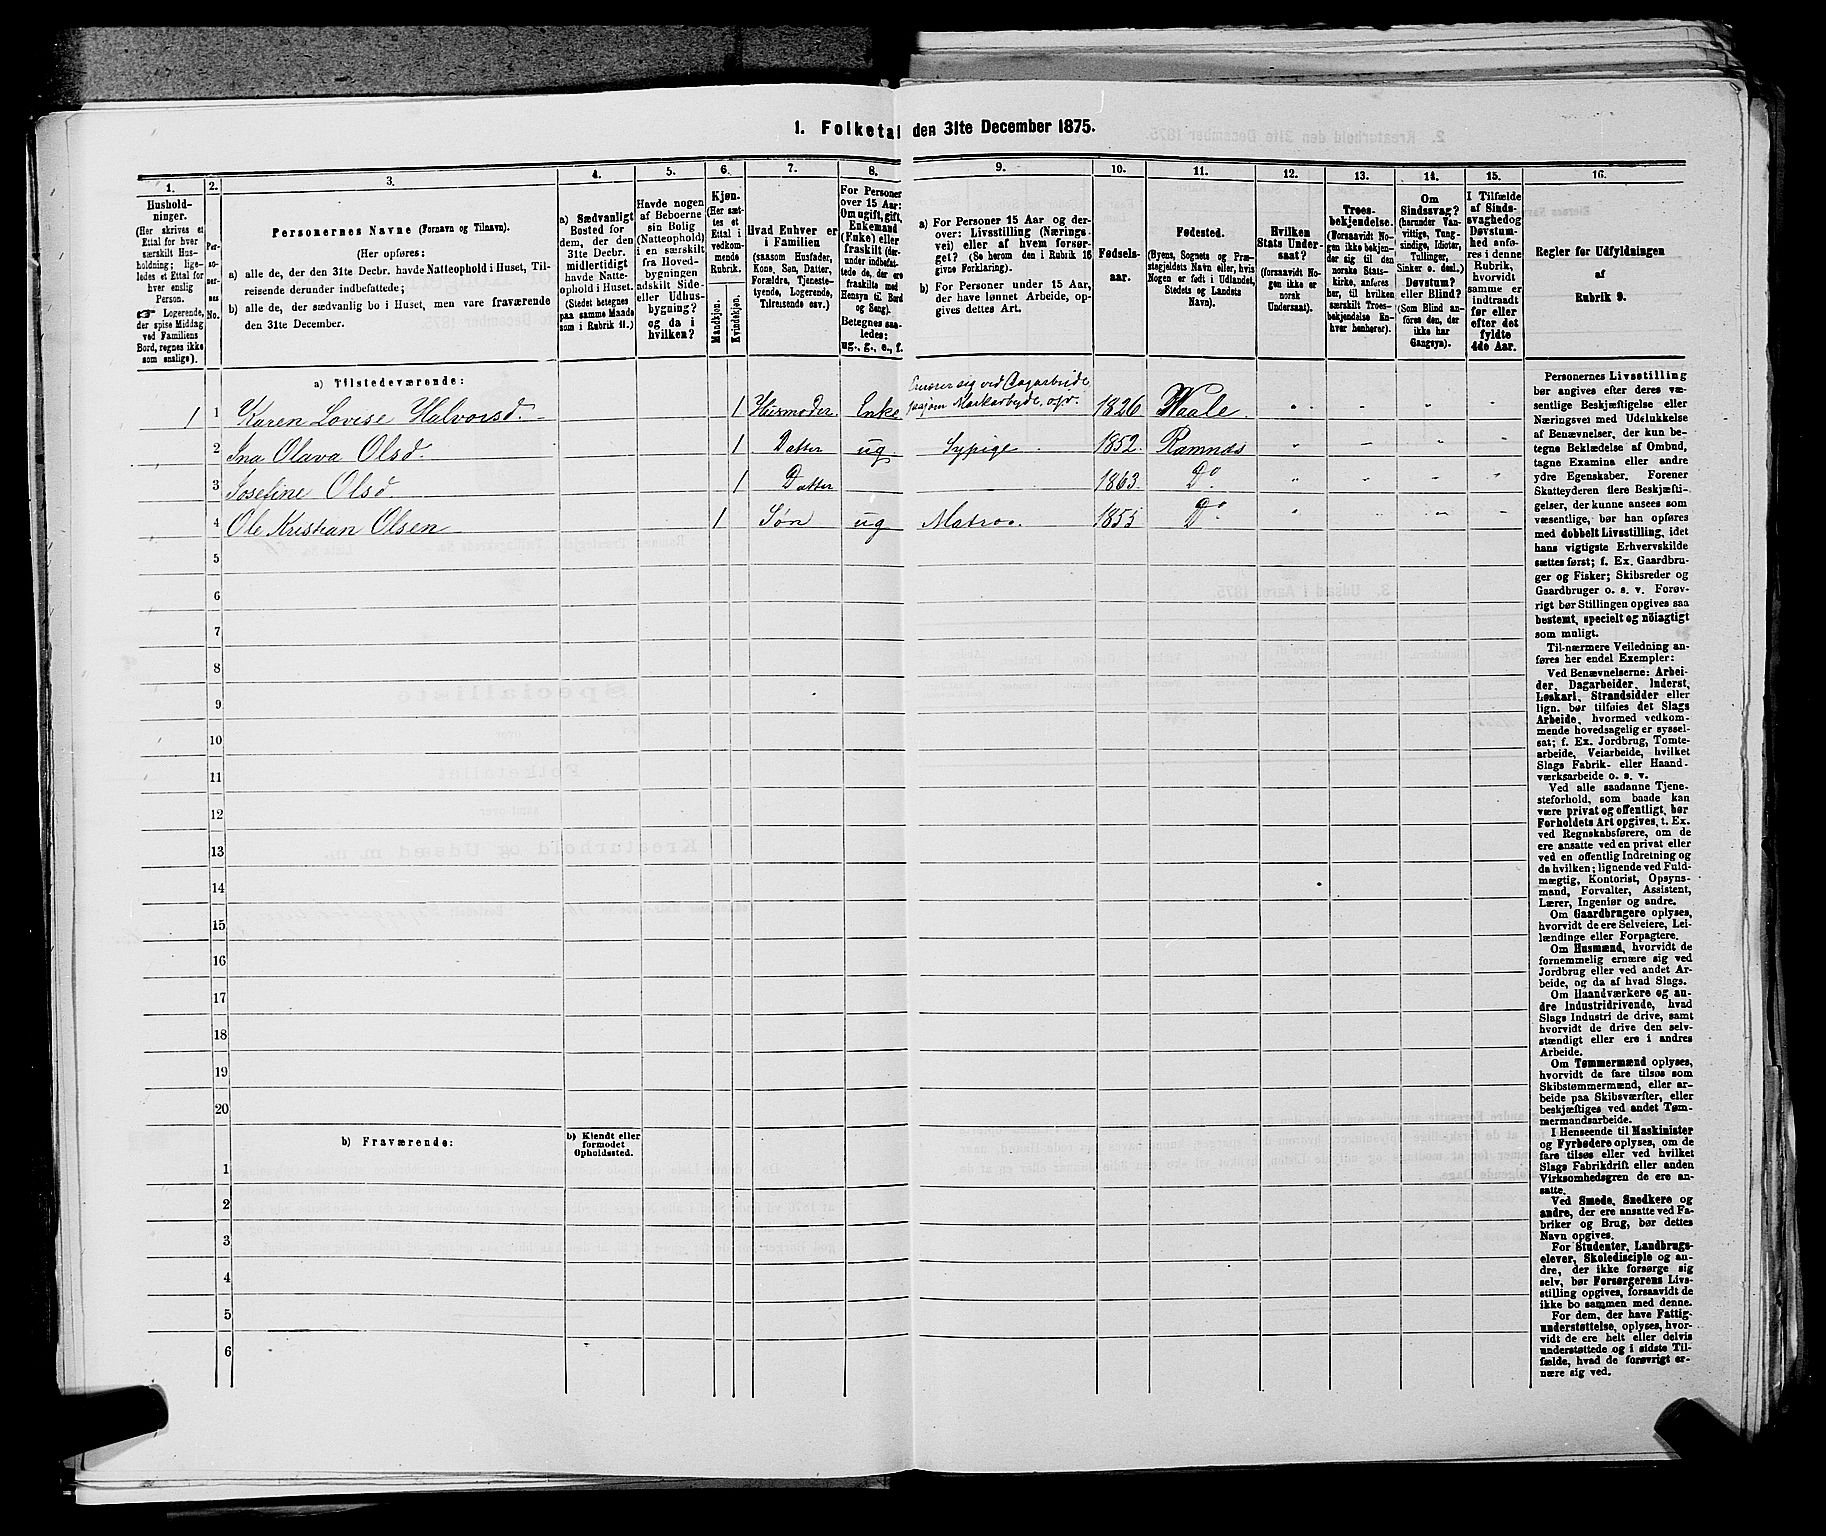 1. Folketal den 31te December 1875.
1.
2.
3.
4.
5.
6.
7.
8.
9.
10.
11.
12.
13.
14.
15.
16.
Husholdninger.
(Her skrives et
Ettal for hver
særskilt Husholdning; ligeledes et Ettal for
hver enslig
Person.
☞ Logerende,
der spise Middag
ved Familiens
Bord, regnes ikke
som enslige).
Personernes No.
Personernes Navne (Fornavn og Tilnavn).
(Her opføres:
a) alle de, der den 31te Decbr. havde Natteophold i Huset, Tilreisende derunder indbefattede;
b) alle de, der sædvanlig bo i Huset, men vare fraværende
den 31te December.
a) Sædvanligt
Bosted for
dem, der den
31te Decbr.
midlertidigt
havde Natteophold i Huset.
(Stedet betegnes
paa samme Maade
som i Rubrik 11.)
Havde nogen
af Beboerne
sin Bolig
(Natteophold)
i en særskilt
fra Hovedbygningen
adskilt Side-
eller Udhusbygning?
og da i
hvilken?
Kjøn.
(Her sættes et
Ettal i
vedkommende
Rubrik.
Mandkjøn.
Kvindekjøn.
Hvad Enhver er
i Familien
(saasom Husfader,
Kone, Søn, Datter,
Forældre, Tjenestetyende, Logerende,
Tilreisende osv.)
For Personer
over 15 Aar:
Om ugift, gift,
Enkemand
(Enke) eller
fraskilt (derunder indbefattede de, der ere
fraskilte med
Hensyn til Bord
og Seng).
Betegnes saaledes:
ug., g., e., f.
a) For Personer 15 Aar og derover: Livsstilling (Næringsvei) eller af hvem forsørget? (Se herom den i Rubrik 16
givne Forklaring).
b) For Personer under 15 Aar,
der have lønnet Arbeide, opgives dettes Art.
Fødselsaar.
Fødested.
(Byens, Sognets og Præstegjeldets Navn eller, hvis
Nogen er født i Udlandet,
Stedets og Landets
Navn).
Hvilken
Stats Undersaat?
(forsaavidt Nogen ikke er
norsk
Undersaat).
Troesbekjendelse.
(Forsaavidt Nogen ikke bekjender sig til den
norske Statskirke, anføres
her, til hvilken
særskilt Troesbekjendelse Enhver henhører).
Om
Sindssvag?
(herunder Vanvittige, Tungsindige, Idioter,
Tullinger,
Sinker o. desl.)
Døvstum?
eller Blind?
(Som Blind anføres den, der
ikke har
Gangsyn).
I Tilfælde
af Sindssvaghed og
Døvstumhed anføres i denne
Rubrik,
hvorvidt
samme er
indtraadt
før eller
efter det
fyldte
4de Aar.
Regler for Udfyldningen
af
Rubrik 9.
a) Tilstedeværende:
1 1 Karen Lovise Halvorsd. 1 Husmoder. Enke Ernærer sig ved Dagarbeide, saasom Markarbejde, osv. 1826 Waale
2 Ina Olava Olsd. 1 Datter ug. Sypige 1852. Ramnæs
3 Josefine Olsd. 1 Datter 1863. Do.
4 Ole Kristian Olsen 1 Søn ug Matros. 1855 Do
5
6
7
8
9
10
11
12
13
14
15
16
17
18
19
20
b) Fraværende:
b) Kjendt eller
formodet
Opholdssted.
1
2
3
4
5
6
Personernes Livsstilling
bør angives efter deres væsentlige Beskjæftigelse eller
Næringsvei med Udelukkelse
af Benævnelser, der kun betegne Beklædelse af Ombud,
tagne Examina eller andre
ydre Egenskaber. Forener
Skatteyderen flere Beskjæftigelser, der kunne ansees som
væsentlige, bør han opføres
med dobbelt Livsstilling, idet
hans vigtigste Erhvervskilde
sættes først; f. Ex. Gaardbruger og Fisker; Skibsreder og
Gaardbruger o. s. v. Forøvrigt bør Stillingen opgives saa
bestemt, specielt og nöiagtigt
som muligt.
Til nærmere Veiledning anføres her endel Exempler:
Ved Benævnelserne: Arbeider, Dagarbeider, Inderst,
Løskarl, Strandsidder eller
lign. bør tilføies det Slags
Arbeide, hvormed vedkommende hovedsagelig er sysselsat; f. Ex. Jordbrug, Tomtearbeide, Veiarbeide, hvilket
Slags Fabrik- eller Haandværksarbeide o. s. v.
Ved alle saadanne Tjenesteforhold, som baade kan
være privat og offentligt, bør
Forholdets Art opgives, t. Ex.
ved Regnskabsførere, om de
ere ansatte ved en privat eller
ved en offentlig Indretning og
da hvilken; lignende ved Fuldmægtig, Kontorist, Opsynsmand, Forvalter, Assistent,
Lærer, Ingeniør og andre.
Om Gaardbrugere oplyses,
hvorvidt de ere Selveiere, Leilændinge eller Forpagtere.
Om Husmænd, hvorvidt de
fornemmelig ernære sig ved
Jordbrug eller ved andet Arbeide, og da af hvad Slags.
Om Haandværkere og andre Industridrivende, hvad
Slags Industri de drive, samt
hvorvidt de drive den selvstændigt eller ere i andres
Arbeide.
Om Tømmermænd oplyses,
hvorvidt de fare tilsøs som
Skibstømmermænd, eller arbeide paa Skibsværfter, eller
beskjæftiges ved andet Tømmermandsarbeide.
I Henseende til Maskinister
og Fyrbødere oplyses, om de
fare tilsøs eller ved hvilket
Slags Fabrikdrift eller anden
Virksomhedsgren de ere ansatte.
Ved Smede, Snedkere og
andre, der ere ansatte ved Fabriker og Brug, bør dettes
Navn opgives.
For Studenter, Landbrugselever, Skoledisciple og andre, der ikke forsørge sig
selv, bør Forsørgerens Livsstilling opgives, forsaavidt de
ikke bo sammen med denne.
For dem, der have Fattigunderstøttelse, oplyses, hvorvidt de ere helt eller delvis
understøttede og i sidste Tilfælde, hvad de forøvrigt ernære sig ved.